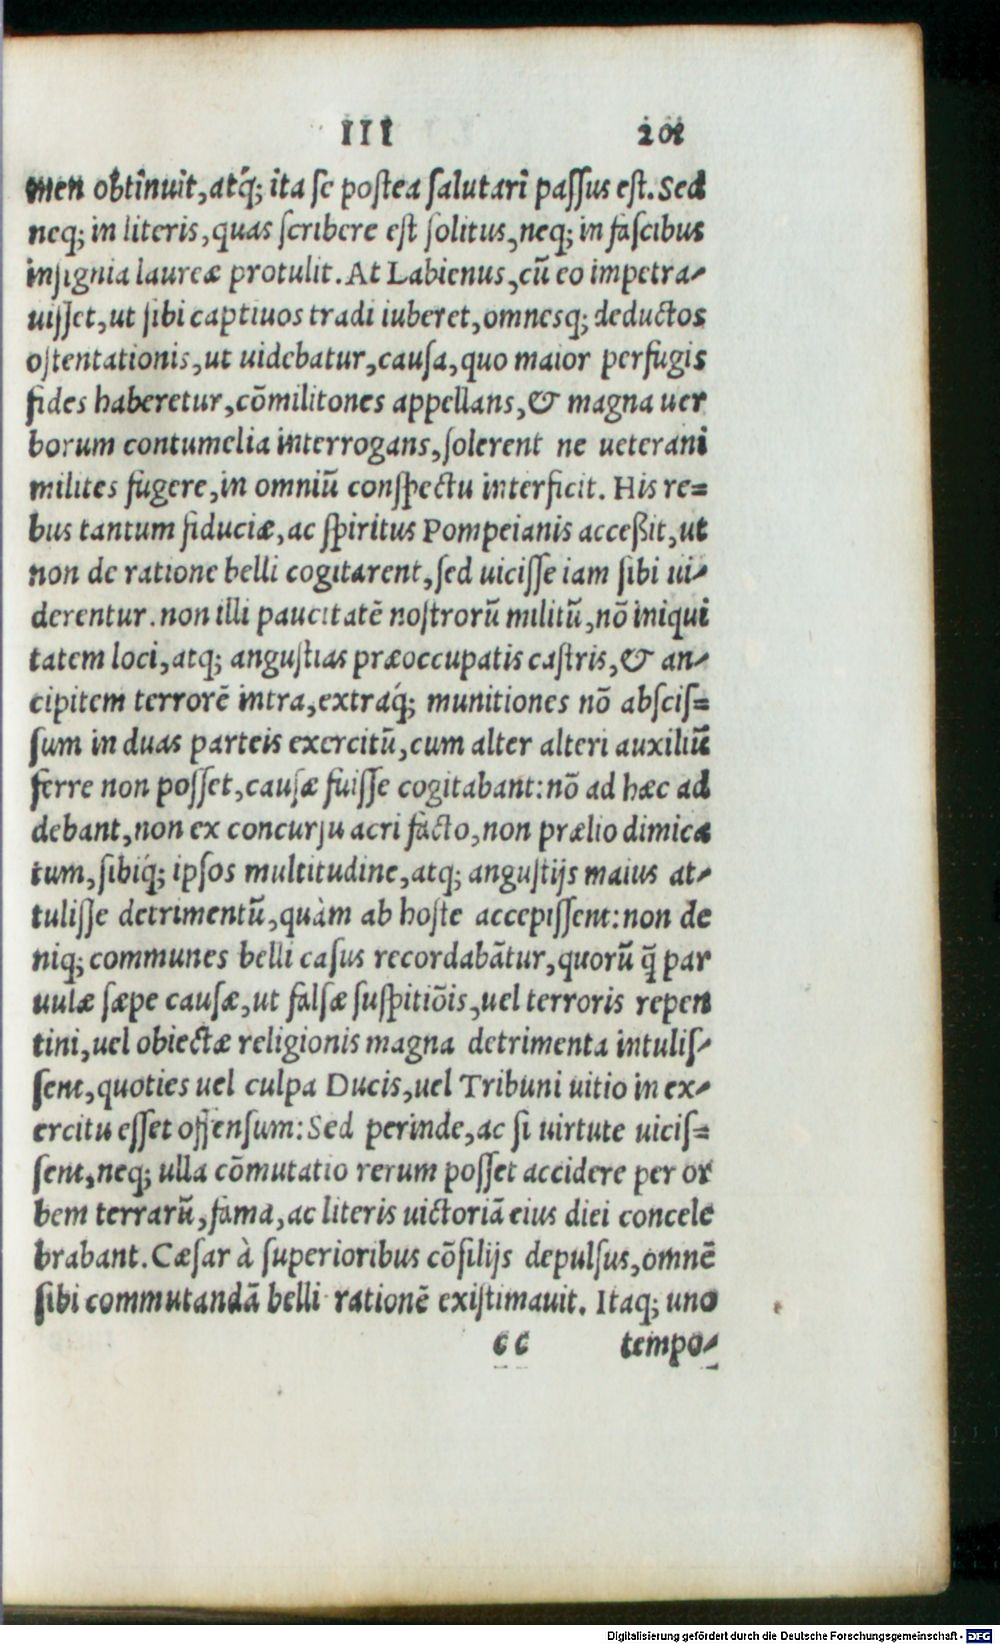 III 201
men obtinuit, atq́; ita se postea salutari passus est. Sed
neq; in literis, quas scribere est solitus, neq; in fascibus
insignia laureæ protulit. At Labienus, cũ eo impetra-
uisset, ut sibi captiuos tradi iuberet, omnesq; deductos
ostentationis, ut uidebatur, causa, quo maior perfugis
fides haberetur, cõmilitones appellans, & magna uer
borum contumelia interrogans, solerent ne ueterani
milites fugere, in omniũ conspectu interficit. His re=
bus tantum fiduciæ, ac spiritus Pompeianis acceßit, ut
non de ratione belli cogitarent, sed uicisse iam sibi ui-
derentur. non illi paucitatẽ nostrorũ militũ, nõ iniqui
tatem loci, atq; angustias præoccupatis castris, & an-
cipitem terrorẽ intra, extraq́; munitiones nõ abscis=
sum in duas parteis exercitũ, cum alter alteri auxiliũ
ferre non posset, causæ fuisse cogitabant: nõ ad hæc ad
debant, non ex concursu acri facto, non prælio dimica
tum, sibiq́; ipsos multitudine, atq; angustijs maius at-
tulisse detrimentũ, quàm ab hoste accepissent: non de
niq; communes belli casus recordabãtur, quorũ q̃ par
uulæ sæpe causæ, ut falsæ suspitiõis, uel terroris repen
tini, uel obiectæ religionis magna detrimenta intulis-
sent, quoties uel culpa Ducis, uel Tribuni uitio in ex-
ercitu esset offensum: Sed perinde, ac si uirtute uicis=
sent, neq; ulla cõmutatio rerum posset accidere per or
bem terrarũ, fama, ac literis uictoriã eius diei concele
brabant. Cæsar à superioribus cõsilijs depulsus, omnẽ
sibi commutandã belli rationẽ existimauit. Itaq; uno
cc tempo-
Digitalisierung gefördert durch die Deutsche Forschungsgemeinschaft - DFG